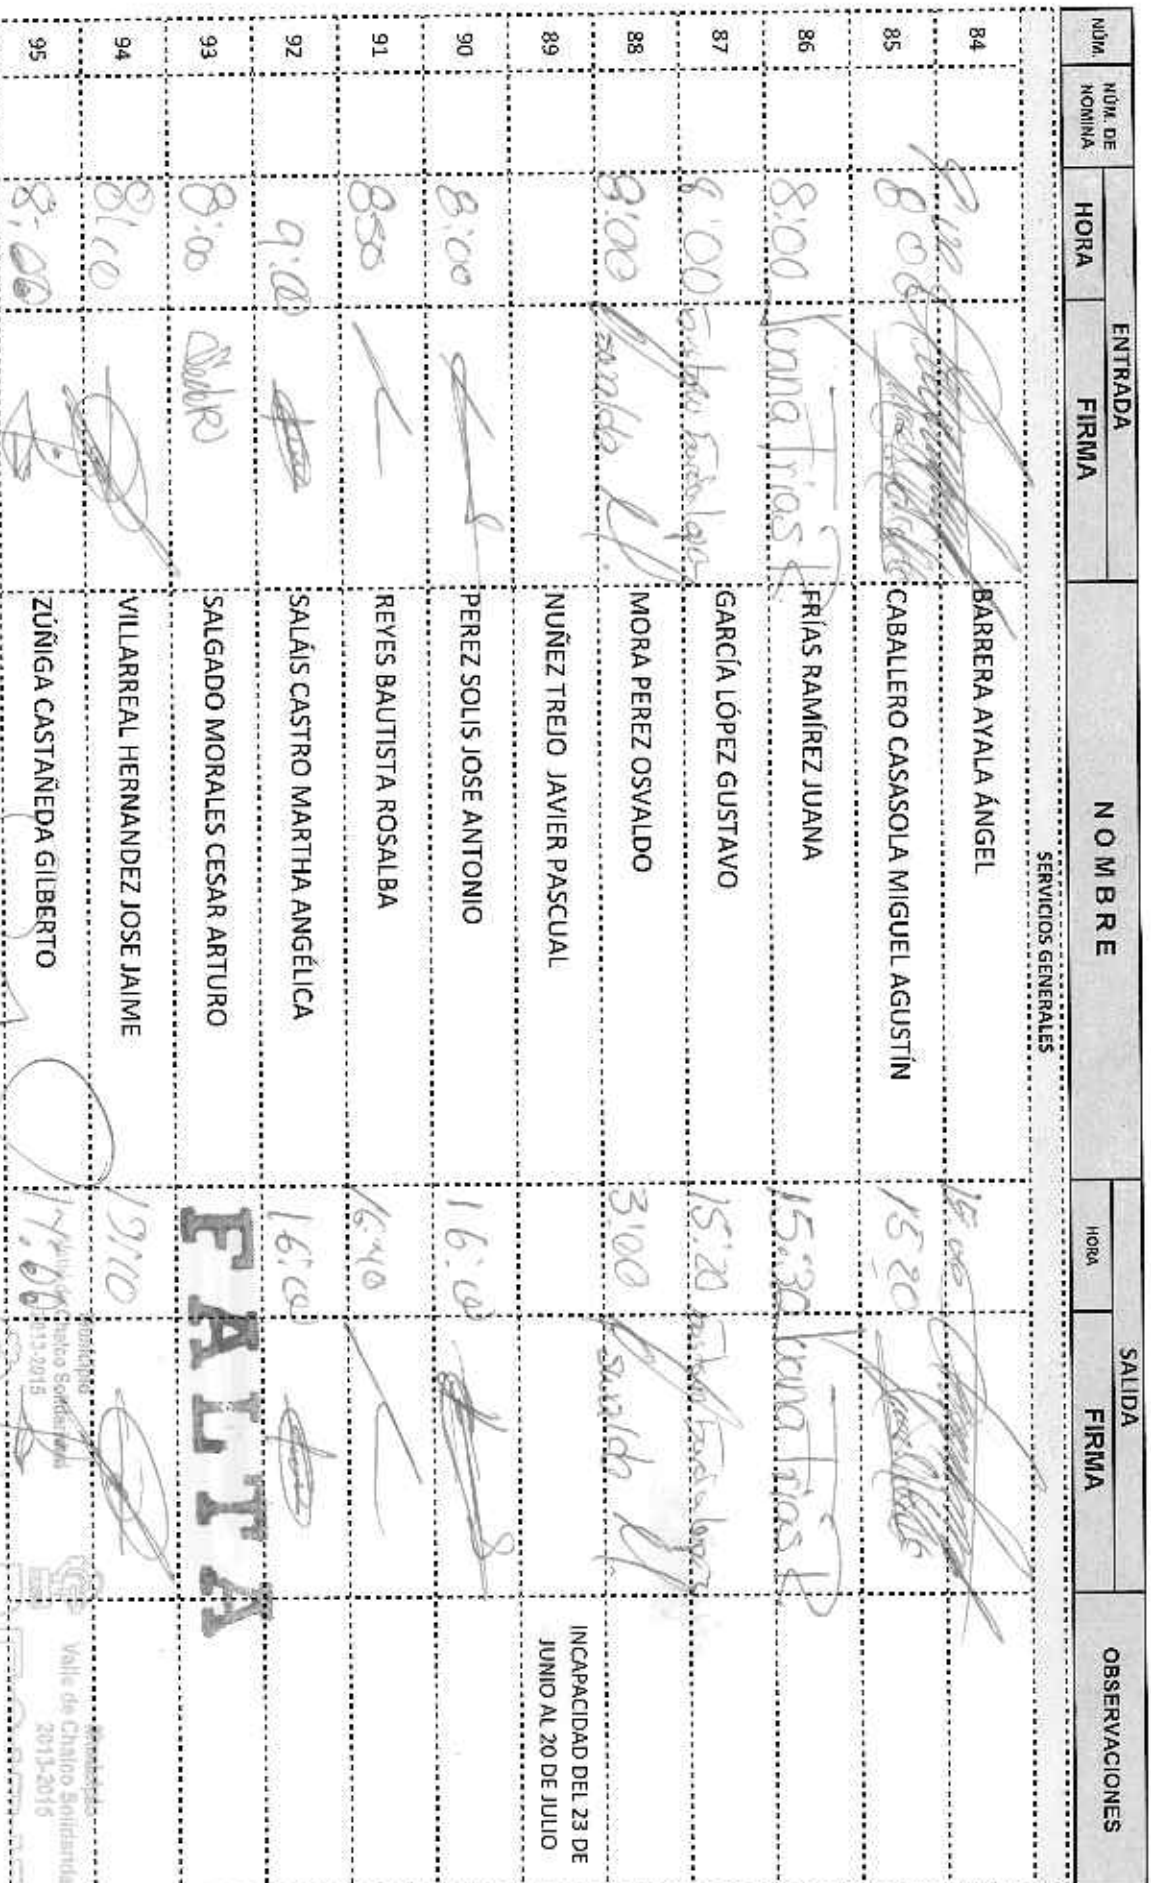 NÚM. NÚM. DE NOMINA ENTRADA HORA FIRMA NOMBRE SALIDA HORA FIRMA OBSERVACIONES
SERVICIOS GENERALES
84 BARRERA AYALA ÁNGEL 15:00
85 8:00 CABALLERO CASASOLA MIGUEL AGUSTÍN 15:20
86 8:00 Juana Frias R FRÍAS RAMÍREZ JUANA 15:30 Juana Frias R
87 8:00 GARCÍA LÓPEZ GUSTAVO 15:20
88 8:00 Osvaldo M. MORA PEREZ OSVALDO 3:00 Osvaldo M.
89 NUÑEZ TREJO JAVIER PASCUAL INCAPACIDAD DEL 23 DE
JUNIO AL 20 DE JULIO
90 8:00 PEREZ SOLIS JOSE ANTONIO 16:00
91 8:50 REYES BAUTISTA ROSALBA 16:40
92 9:00 SALÁIS CASTRO MARTHA ANGÉLICA 16:00
93 8:00 SALGADO MORALES CESAR ARTURO FALTA
94 8:10 VILLARREAL HERNANDEZ JOSE JAIME
95 8:06 ZÚÑIGA CASTAÑEDA GILBERTO
Municipio
Valle de Chalco Solidaridad
2013-2015
Municipio
Valle de Chalco Solidarida
2013-2015